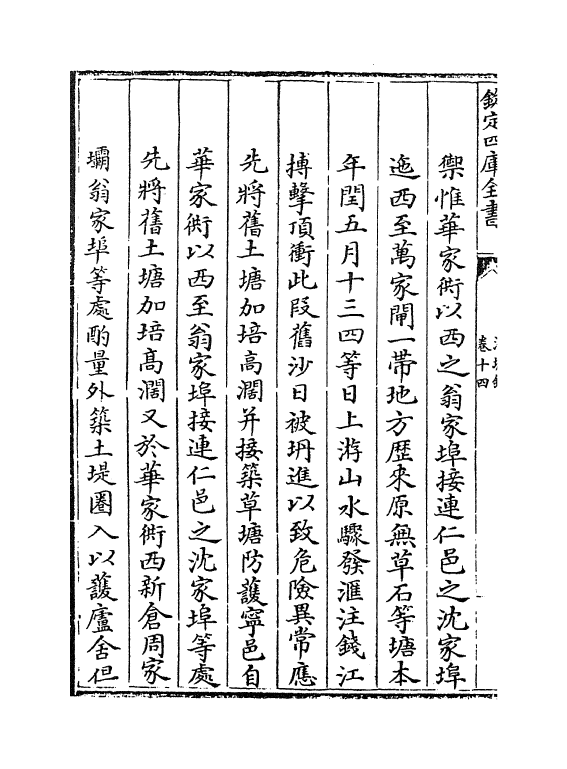 欽定四庫全書
卷十四
禦惟華家衖以西之翁家埠接連仁邑之沈家埠
迤西至萬家閘一帶地方歷來原無草石等塘本
年閏五月十三四等日上游山水驟發滙注錢江
搏擊頂衝此段舊沙日被坍進以致危險異常應
先將舊土塘加培高濶并接築草塘防護寧邑自
華家衖以西至翁家埠接連仁邑之沈家埠等處
先將舊土塘加培高濶又於華家衖西新倉周家
壩翁家埠等處酌量外築土堤圈入以護廬舍但